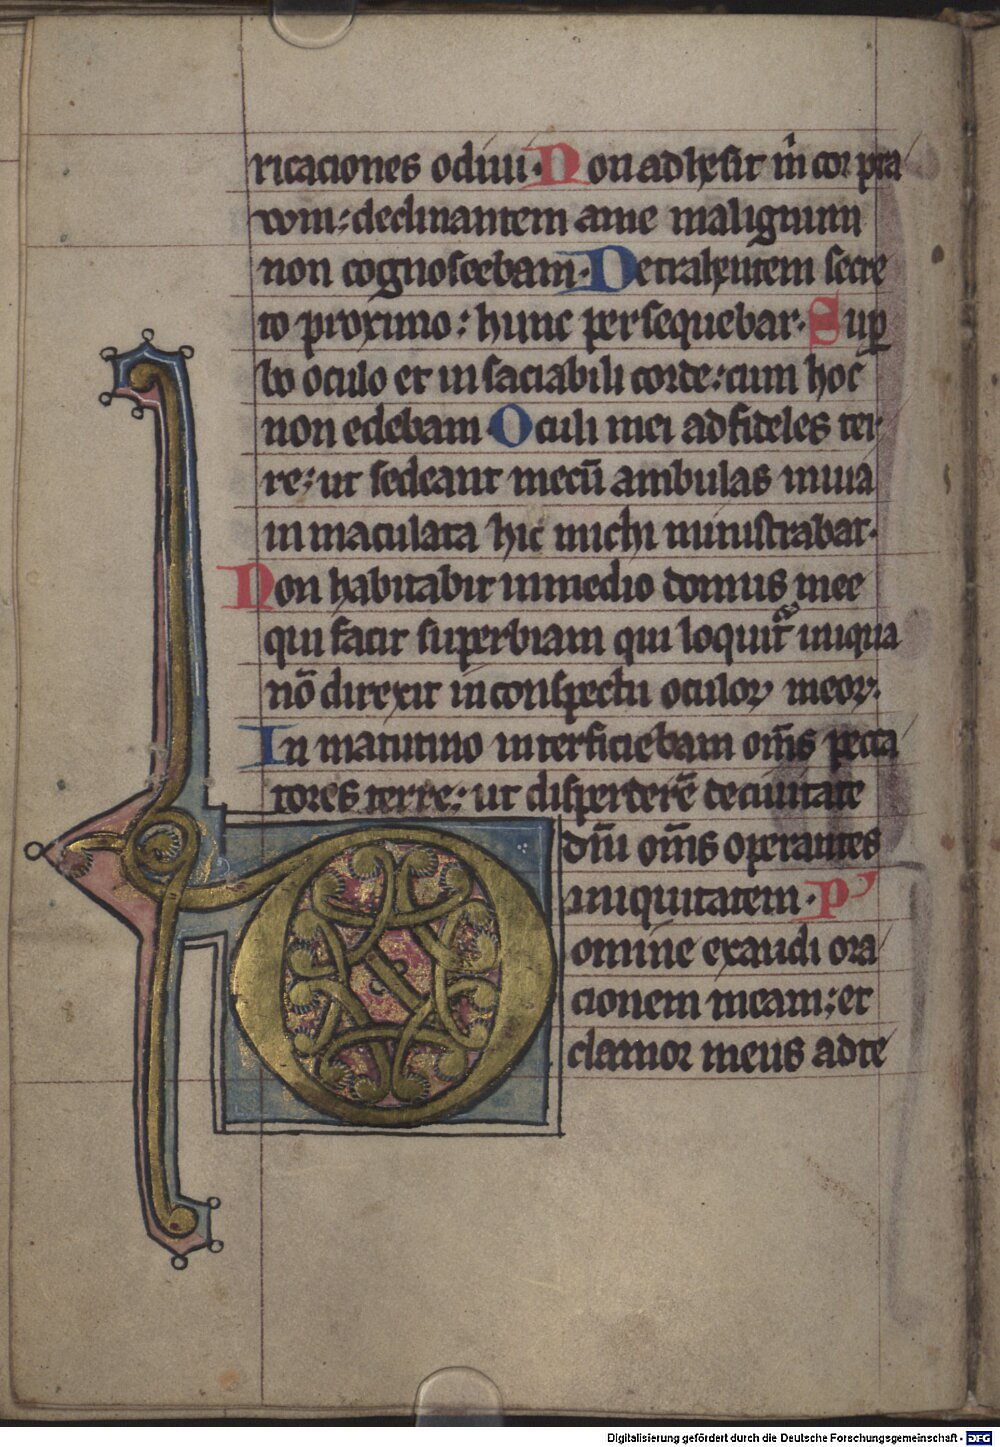 ricaciones odiui. Non adhesit m̄ cor pra
vum: declinantem a me malignum
non cognoscebam. Detrahentem secre
to proximo: hunc persequebar. Sup̱
bo oculo et insaciabili corde: cum hoc
non edebam Oculi mei ad fideles ter
re: ut sedeant mecū ambulas in uia
inmaculata hic michi ministrabat.
Non habitabit in medio domus mee
qui facit superbiam qui loquit᷑ iniqua
nō direxit in conspectu oculoꝝ meoꝝ.
In matutino interficiebam om̄s pecca
tores terre: ut disperderē de ciuitate
dn̄i om̄s operantes
iniquitatem. P'
Domine exaudi ora
cionem meam: et
clamor meus ad te
Digitalisierung gefördert durch die Deutsche Forschungsgemeinschaft - DFG